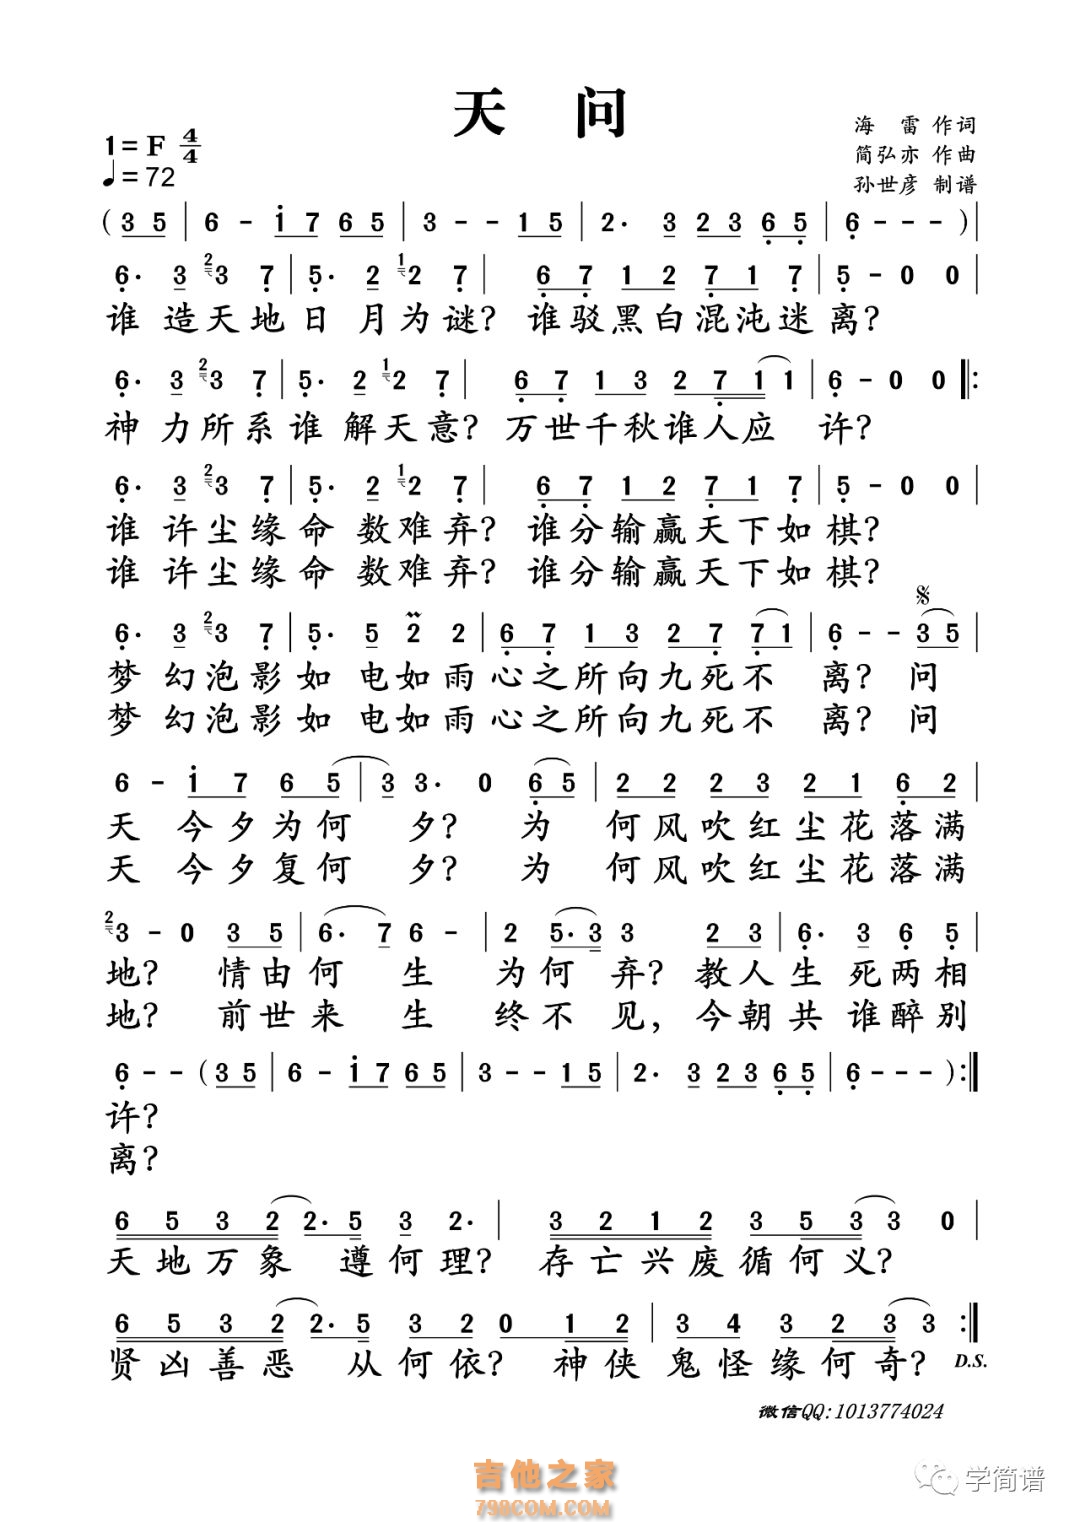 天 问
1= F 4/4
♩= 72
海 雷 作词
简弘亦 作曲
孙世彦 制谱
( 3 5 | 6 - i 7 6 5 | 3 - - 1 5 | 2· 3 2 3 6 5 | 6 - - - ) |
6· 3 2 3 7 | 5· 2 1 2 7 | 6 7 1 2 7 1 7 | 5 - 0 0 |
谁 造天地日 月为谜? 谁驳黑白混沌迷 离?
6· 3 2 3 7 | 5· 2 1 2 7 | 6 7 1 3 2 7 1 1 | 6 - 0 0 ‖:
神 力所系谁 解天意? 万世千秋谁人应 许?
6· 3 2 3 7 | 5· 2 1 2 7 | 6 7 1 2 7 1 7 | 5 - 0 0 |
谁 许尘缘命 数难弃? 谁分输赢天下如 棋?
谁 许尘缘命 数难弃? 谁分输赢天下如 棋?
6· 3 2 3 7 | 5· 5 2 2 | 6 7 1 3 2 7 7 1 | 6 - - 3 5 |
梦 幻泡影如 电如雨 心之所向九死不 离? 问
梦 幻泡影如 电如雨 心之所向九死不 离? 问
6 - i 7 6 5 | 3 3· 0 6 5 | 2 2 2 3 2 1 6 2 |
天 今夕为何 夕? 为 何风吹红尘花落满
天 今夕复何 夕? 为 何风吹红尘花落满
2 3 - 0 3 5 | 6· 7 6 - | 2 5· 3 3 2 3 | 6· 3 6 5 |
地? 情由何 生 为何 弃? 教人生 死两相
地? 前世来 生 终不 见, 今朝共 谁醉别
6 - - ( 3 5 | 6 - i 7 6 5 | 3 - - 1 5 | 2· 3 2 3 6 5 | 6 - - - ) :‖
许?
离?
6 5 3 2 2· 5 3 2· | 3 2 1 2 3 5 3 3 0 |
天地万象 遵何理? 存亡兴废循何义?
6 5 3 2 2· 5 3 2 0 1 2 | 3 4 3 2 3 3 :‖
贤凶善恶 从何依? 神侠鬼怪缘何奇? D.S.
微信QQ:1013774024
吉他之家
798COM.COM
学简谱